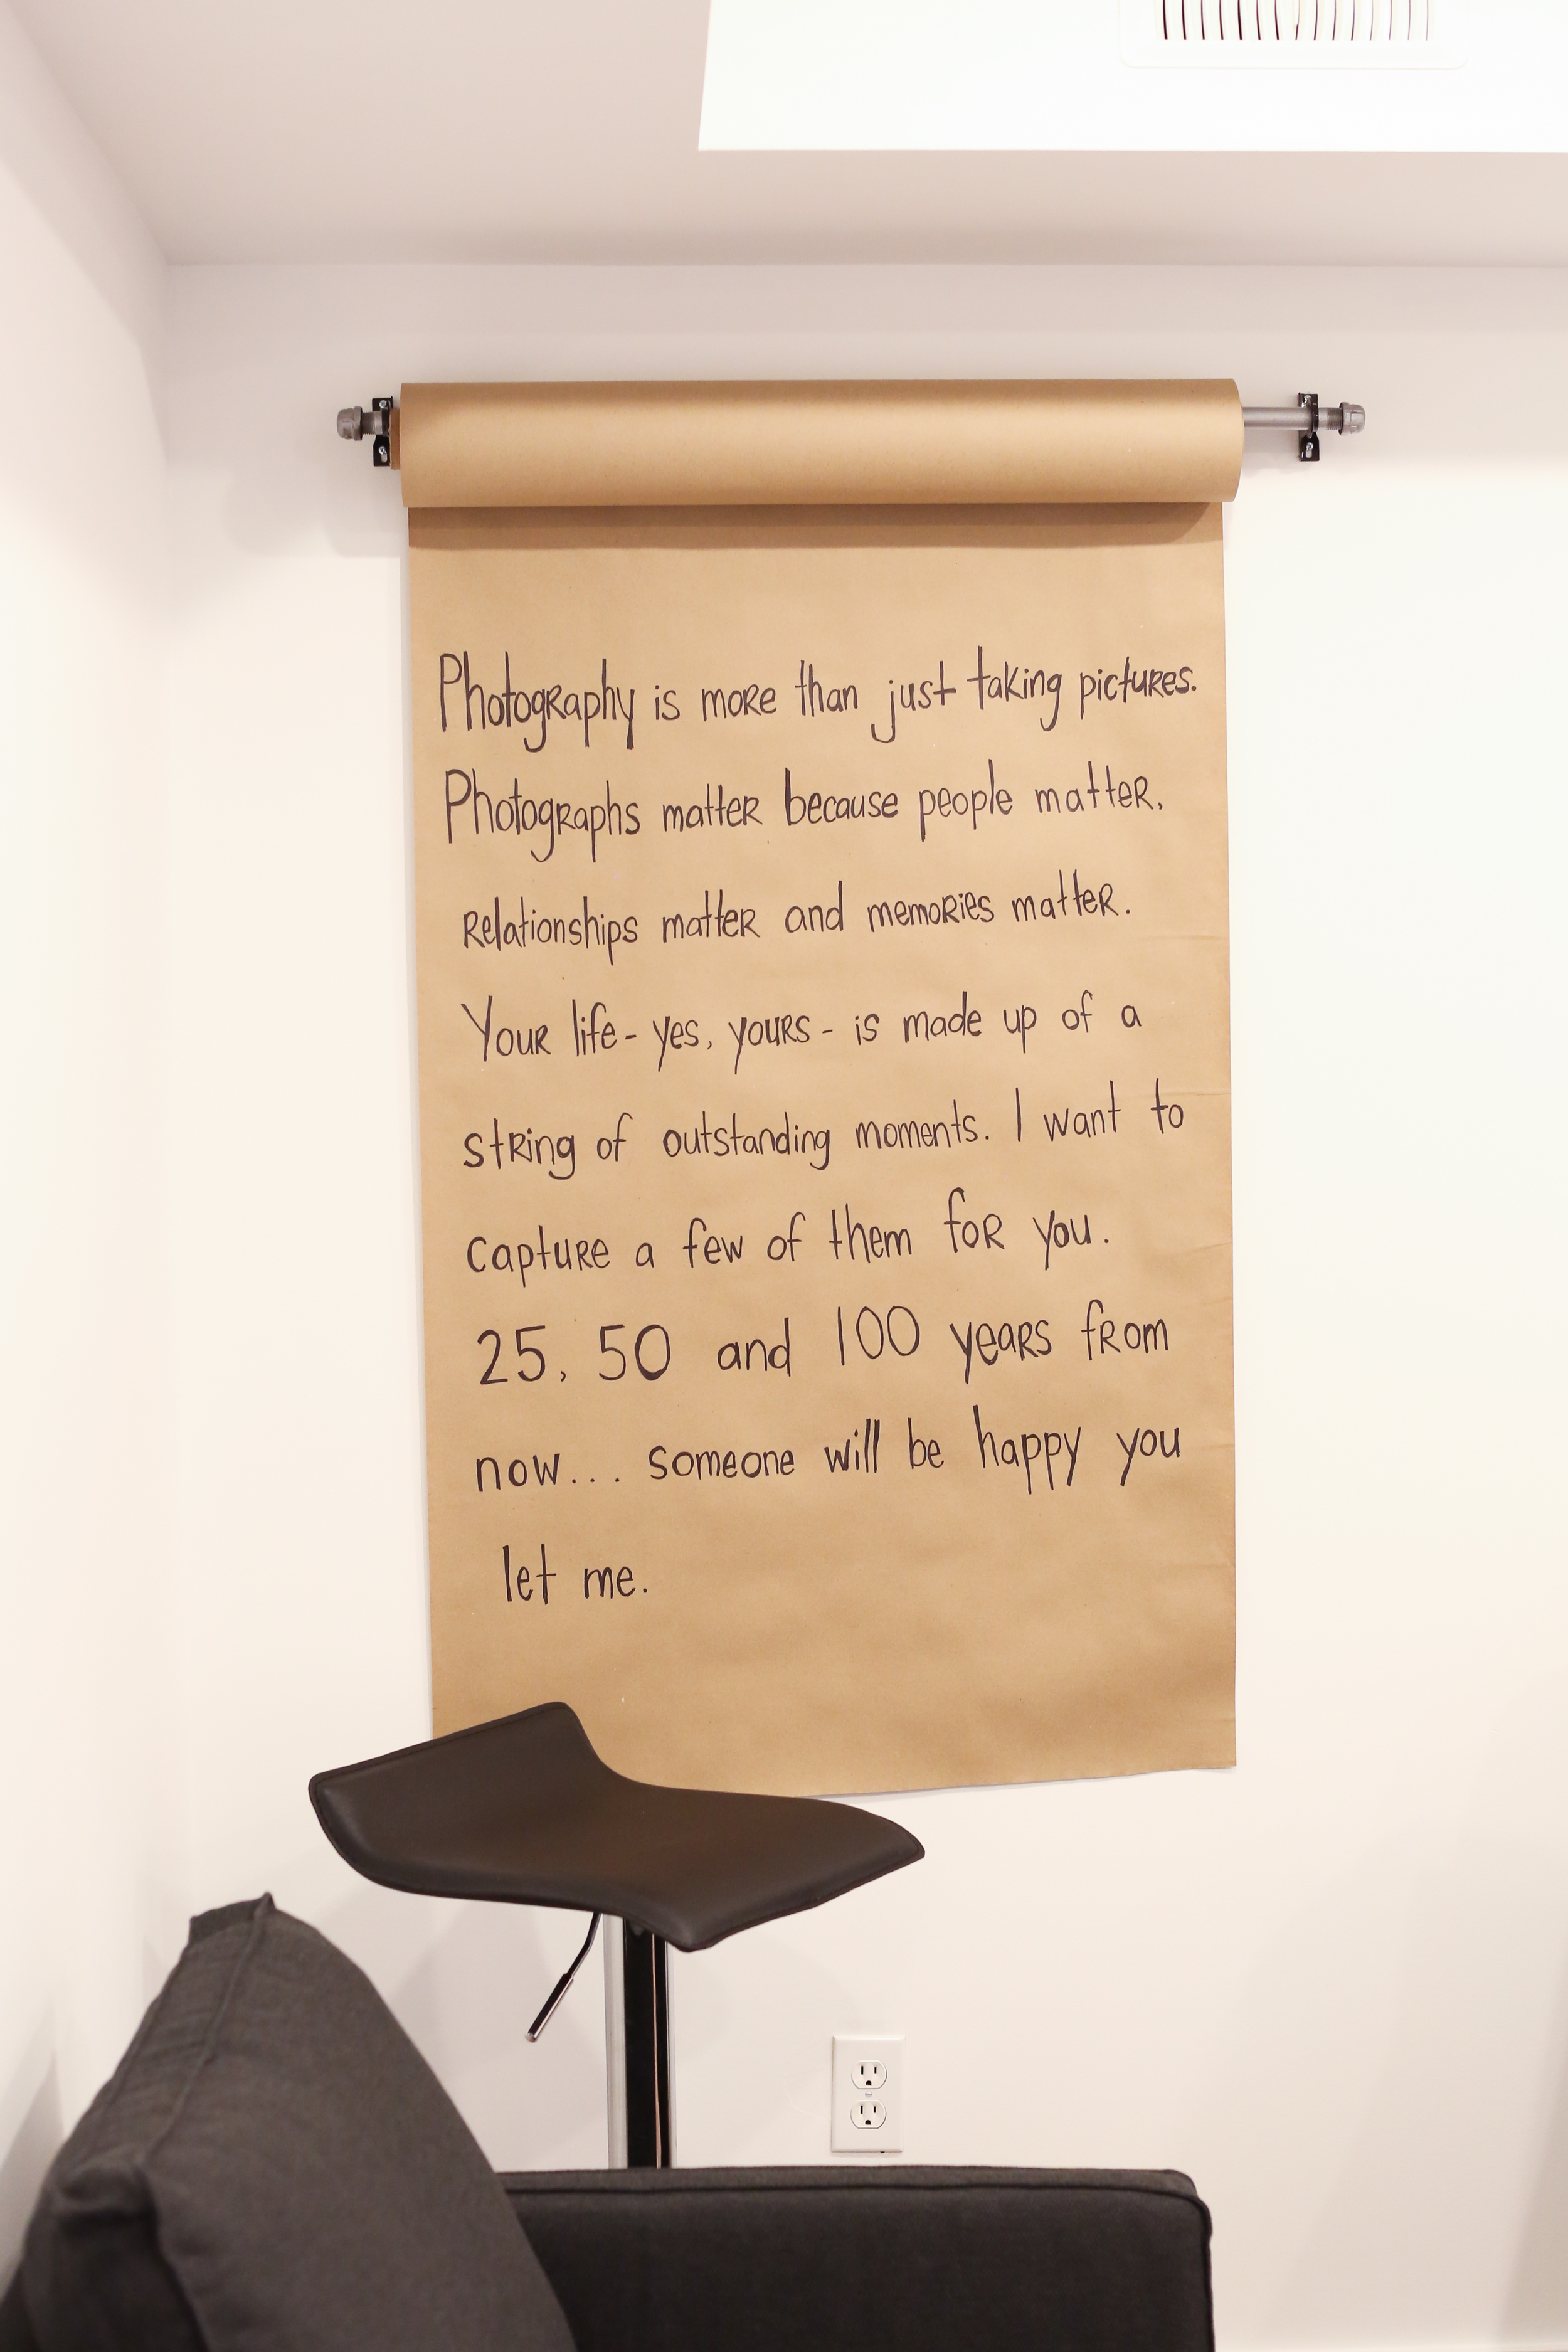 Photography is more than just taking pictures.
Photographs matter because people matter.
Relationships matter and memories matter.
Your life - yes, yours - is made up of a
string of outstanding moments. I want to
capture a few of them for you.
25, 50 and 100 years from
now... someone will be happy you
let me.